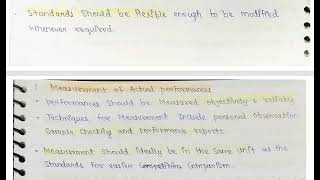 Standards should be flexible enough to be modified
whenever required.
2 Measurement of Actual performances
performances should be Measured objectively & reliably
Techniques for Measurement Include personal observation
Sample checking and performance reports.
Measurement should ideally be in the same unit as the
Standards for easier Comparison.